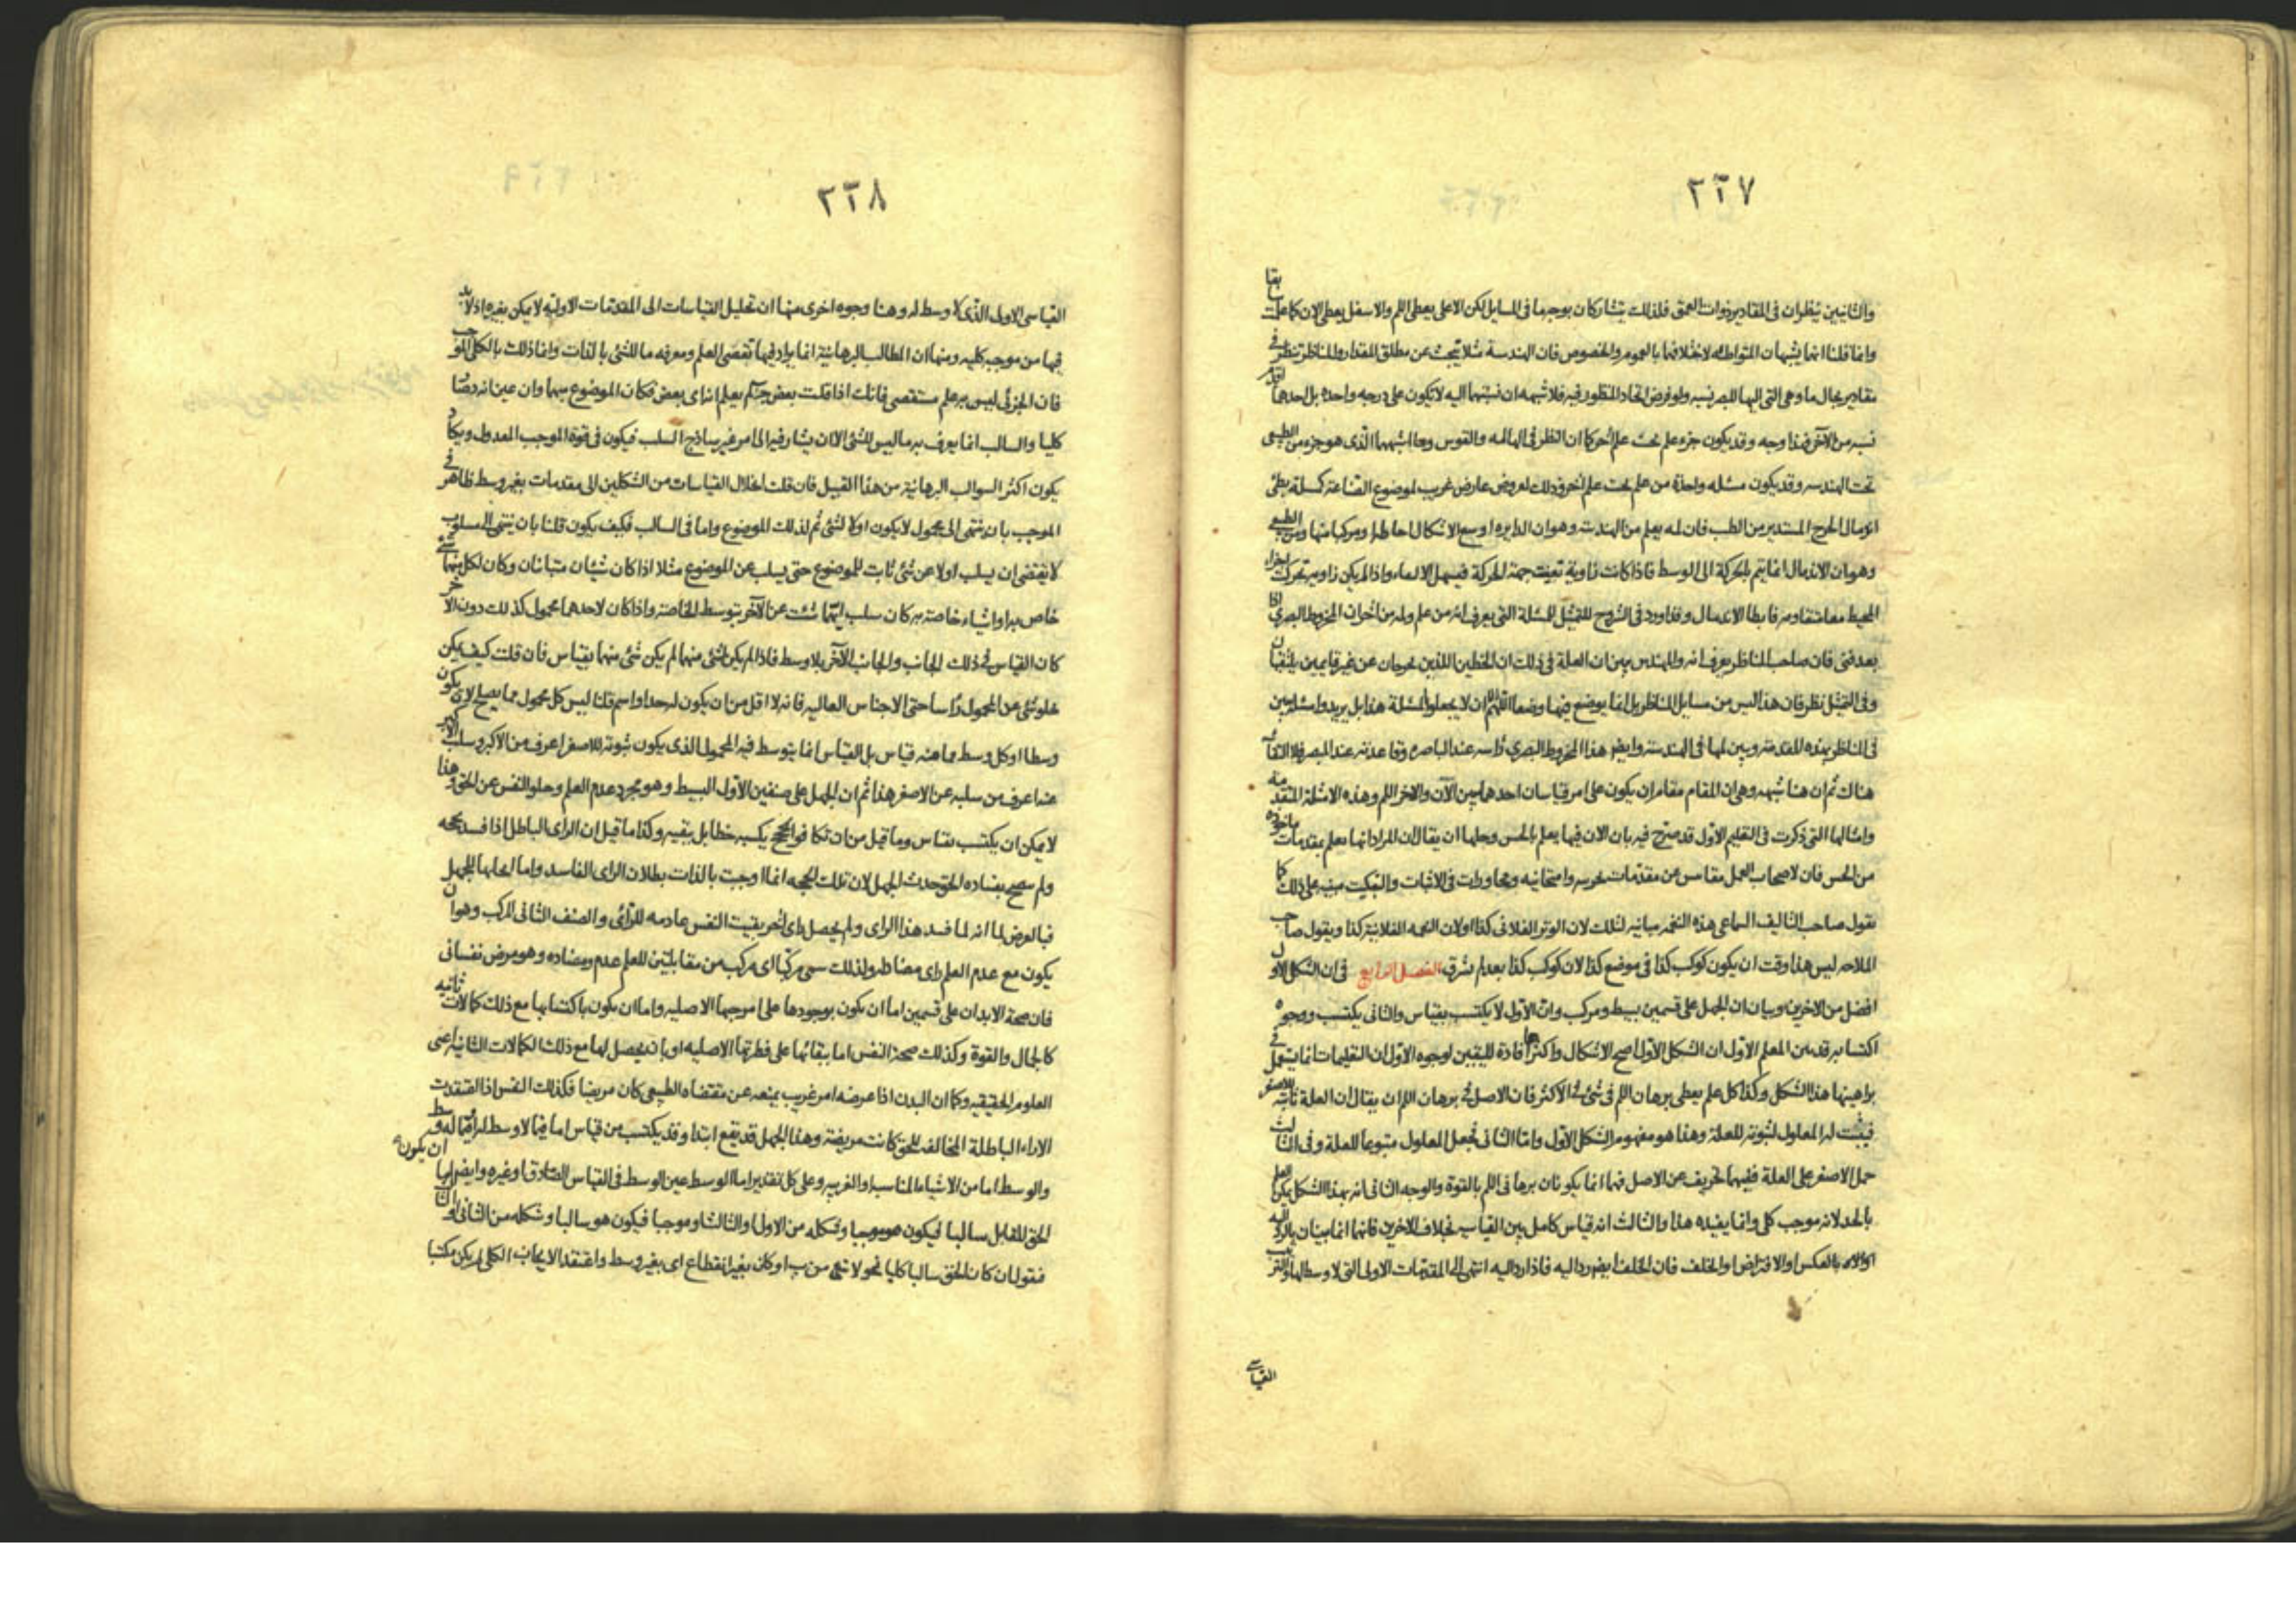 ٢٢٧
والثانيين ينظران في المقادير ذوات العمق فلذلك يتشاركان بوجه ما في المسايل لكن الاعلى يعطى اللم والاسفل يعطى الان كما علمت سابقا
وانما قلنا انما يشبهان المتواطئه لاختلافهما بالعموم والخصوص فان الهندسة مثلا تبحث عن مطلق المقدار والمناظر تنظر في
مقادير بحال ما وهي التي اليها للبصر نسبه ولو فرض اتحاد المنظور فيه فلا شبهه ان نسبتهما اليه لا تكون على درجه واحدة بل احدهما اقرب
نسبه من الآخر فهذا وجه وقد يكون جزء علم تحت علم آخر كما ان النظر في الهاله والقوس وما اشبههما الذى هو جزء من الطبيعى
تحت الهندسه وقد يكون مسئله واحدة من علم تحت علم آخر وذلك لعروض عارض غريب لموضوع الصناعة كمسئلة بطئ
اندمال الجرح المستدير من الطب فان لمه يعلم من الهندسة وهو ان الدايره اوسع الاشكال احاطة ومركبا منها ومن الطبيعى
وهو ان الاندمال انما يتم بالحركة الى الوسط فاذا كانت زاوية تعينت جهة الحركة فيسهل الالتقاء واذا لم يكن زاويه تحركت اجزاء
المحيط معا متقاومه فابطا الاندمال وقد اورد في الشروح للتمثيل المسئلة التى يعرف انه من علم ولمه من آخر ان المخروط البصري اذا
بعد فنى فان صاحب المناظر يعرف انه والمهندس يبرهن ان العلة في ذلك ان الخطين اللذين يخرجان عن غير قايمين يلتقيان
وفي التمثيل نظر فان هذا ليس من مسايل المناظر بل انما يوضع فيها وضعا اللهم الا ان لا يجعلوا المسئلة هذا بل يريدوا مسئلة تبين
في المناظر بهذه المقدمة ويبين لمها في الهندسة وايضا هذا المخروط البصري رأسه عند الباصره وقاعدته عند المبصر فلا التقاء
هناك ثم ان هنا شبهه وهي ان المقام مقام ان يكون على امر قياسان احدهما يبين الان والاخر اللم وهذه الامثلة المتقدمة
وامثالها التى ذكرت في التعليم الاول قد صرح فيه بان الان فيها يعلم بالحس وحلها ان يقال ان المراد انها تعلم بمقدمات ماخوذه
من الحس فان لاصحاب العمل مقاييس عن مقدمات تجربيه وامتحانيه ومحاورات في الاثبات والتبكيت مبنيه على ذلك كما
يقول صاحب التاليف السماعى هذه النغمه مباينه لتلك لان الوتر الفلانى كذا او لان النغمه الفلانية كذا ويقول صاحب
الملاحه ليس هذا وقت ان يكون كوكب كذا في موضع كذا لان كوكب كذا بعد لم يشرق الفصل الرابع في ان الشكل الاول
افضل من الاخرين وبيان ان الجهل على قسمين بسيط ومركب وان الاول لا يكتسب بقياس والثانى يكتسب ووجوه
اكتسابه قد بين المعلم الاول ان الشكل الاول اصح الاشكال واكثرها افادة لليقين لوجوه الاول ان التعليمات انما يستعمل في
براهينها هذا الشكل وكذا كل علم يعطى برهان اللم في شئ في الاكثر فان الاصل في برهان اللم ان يقال ان العلة ثابتة للاصغر
فيثبت له المعلول لثبوته للعلة وهذا هو مفهوم الشكل الاول واما الثانى فجعل المعلول متبوعا للعلة وفي الثالث
حمل الاصغر على العلة ففيهما تحريف عن الاصل فهما انما يكونان برهانى اللم بالقوة والوجه الثانى انه بهذا الشكل يمكن العلم
بالحد لانه موجب كلى وانما يفيده هذا والثالث انه قياس كامل بين القياسيه بخلاف الاخرين فانهما انما يبينان بالرد اليه
اولا بالعكس او الافتراض او الخلف فان الخلف ايضا رد اليه فاذا رد اليه انتهى الى المقدمات الاولى التى لا وسط لها والقريب
القياسى
٢٢٨
القياسى الاولى الذى لا وسط له وهنا وجوه اخرى منها ان تحليل القياسات الى المقدمات الاوليه لا يمكن بغيره اذ لا بد
فيها من موجب كليه ومنها ان المطالب البرهانية انما يراد فيها تقصى العلم ومعرفه ما للشئ بالذات وانما ذلك بالكلى الموجب
فان الجزئى ليس به علم مستقصى فانك اذا قلت بعض ج آ لم يعلم انه اى بعض فكان الموضوع مبهما وان عين انه د صار
كليا والسالب انما يعرف به ما ليس للشئ الا ان يشار فيه الى امر غير ساذج السلب فيكون في قوة الموجب المعدول ويكاد
يكون اكثر السوالب البرهانية من هذا القبيل فان قلت انحلال القياسات من الشكلين الى مقدمات بغير وسط ظاهر في
الموجب بان ينتهى الى محمول لا يكون اولا لشئ ثم لذلك الموضوع واما في السالب فكيف يكون قلنا بان ينتهى الى مسلوب
لا يقتضى ان يسلب اولا عن شئ ثابت للموضوع حتى يسلب عن الموضوع مثلا اذا كان شيئان متباينان وكان لكل منهما شئ
خاص به او اشياء خاصة به كان سلب ايهما شئت عن الآخر بتوسط الخاصة واذا كان لاحدهما محمول كذلك دون الاخر
كان القياس في ذلك الجانب والجانب الآخر بلا وسط فاذا لم يكن لشئ منهما لم يكن شئ منهما بقياس فان قلت كيف يمكن
خلو شئ عن المحمول رأسا حتى الاجناس العاليه فانه لا اقل من ان يكون له حد او اسم قلنا ليس كل محمول مما يصلح لان يكون
وسطا او كل وسط مما هنه قياس بل القياس انما يتوسط فيه المحمول الذى يكون ثبوته للاصغر اعرف من الاكبر وسلب الاكبر
عنه اعرف من سلبه عن الاصغر هذا ثم ان الجهل على صنفين الاول البسيط وهو مجرد عدم العلم وخلو النفس عن الحق وهذا
لا يمكن ان يكتسب بقياس وما قيل من ان تكافؤ الحجج يكسبه خطا بل يبقيه وكذا ما قيل ان الراى الباطل اذا فسد بحجه
ولم يصح بفساده الحق حدث الجهل لان تلك الحجه انما اوجبت بالذات بطلان الراى الفاسد واما ايجابها للجهل
فبالعرض لما انه لما فسد هذا الراى ولم يحصل راى آخر بقيت النفس عادمه للرأى والصنف الثانى المركب وهو ان
يكون مع عدم العلم راى مضاد له ولذلك سمى مركبا اى مركب من مقابلتين للعلم عدم ومضاده وهو مرض نفسانى
فان صحة الابدان على قسمين اما ان يكون بوجودها على امزجتها الاصليه واما ان يكون باكتسابها مع ذلك كمالات ثانيه
كالجمال والقوة وكذلك صحة النفس اما بقائها على فطرتها الاصليه او ان يحصل لها مع ذلك الكمالات الثانية اعنى
العلوم الحقيقيه وكما ان البدن اذا عرضه امر غريب يمنعه عن مقتضاه الطبيعى كان مريضا فكذلك النفس اذا اعتقدت
الاراء الباطلة المخالفه للحق كانت مريضة وهذا الجهل قد يقع ابتدا وقد يكتسب من قياس اما فيما لا وسط له او فيما له وسط
والوسط اما من الاشياء المناسبه او الغريبه وعلى كل تقدير اما الوسط عين الوسط في القياس الصادق او غيره وايضا اما ان يكون
الحق المقابل سالبا فيكون هو موجبا وشكله من الاول او الثالث او موجبا فيكون هو سالبا وشكله من الثانى او الثالث
فنقول ان كان الحق سالبا كليا نحو لا شئ من ب ا وكان بغير انقطاع اى بغير وسط واعتقد الايجاب الكلى لم يكن مكتسبا